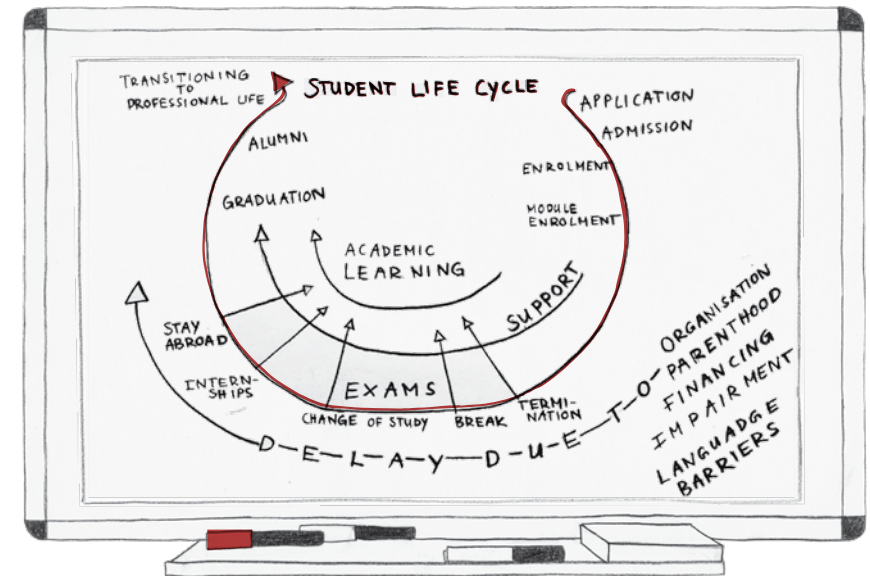 TRANSITIONING
TO
PROFESSIONAL LIFE
STUDENT LIFE CYCLE
APPLICATION
ADMISSION
ENROLMENT
MODULE
ENROLMENT
ALUMNI
GRADUATION
ACADEMIC
LEARNING
SUPPORT
STAY
ABROAD
INTERN-
SHIPS
EXAMS
CHANGE OF STUDY
BREAK
TERMI-
NATION
DELAY DUE TO
ORGANISATION
PARENTHOOD
FINANCING
IMPAIRMENT
LANGUADGE
BARRIERS